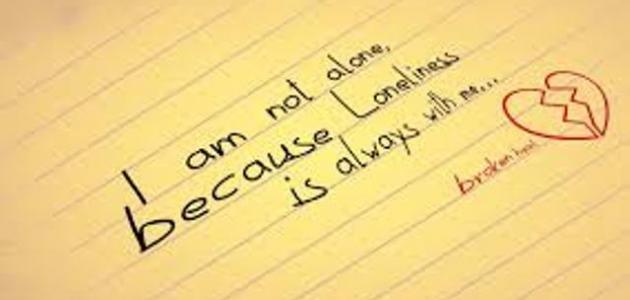 I am not alone,
because Loneliness
is always with me...
broken heart